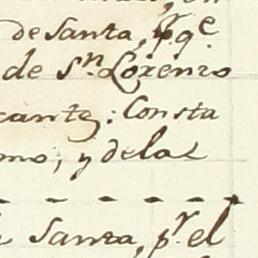 de Santa, pr. qe.
de Sn. Lorenzo
cante: Consta
mo, y de la
Santa, pr. el